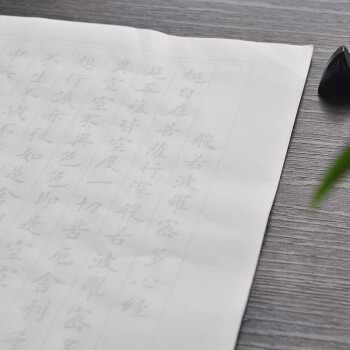 般若波羅蜜多心經
觀自在菩薩行深般若波羅蜜多
見五蘊皆空度一切苦厄舍利子
異空空不異色色即是空空
想行識亦復如是舍利子
不生不